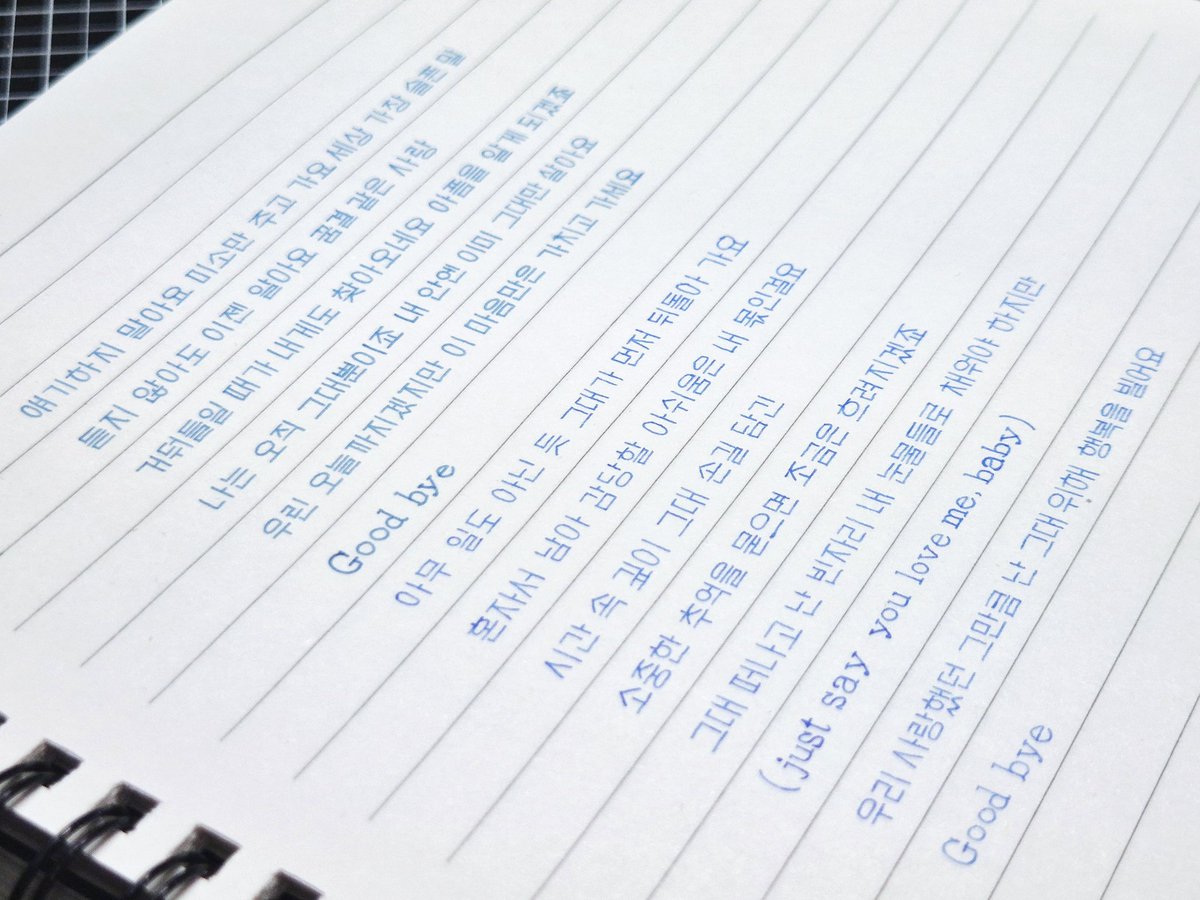 얘기하지 말아요 미소만 주고 가요 세상 가장 슬픈 말
듣지 않아도 이젠 알아요 꿈결 같은 사랑
거둬들일 때가 내게도 찾아오네요 아픔을 알게 되겠죠
나는 오직 그대뿐이죠 내 안엔 이미 그대만 살아요
우린 오늘까지겠지만 이 마음만은 가지고 가세요
Good bye
아무 일도 아닌 듯 그대가 먼저 뒤돌아 가요
혼자서 남아 감당할 아쉬움은 내 몫인걸요
시간 속 깊이 그대 손길 담긴
소중한 추억을 묻으면 조금은 흐려지겠죠
그대 떠나고 난 빈자리 내 눈물들로 채워야 하지만
(just say you love me, baby)
우리 사랑했던 그만큼 난 그대 위해 행복을 빌어요
Good bye